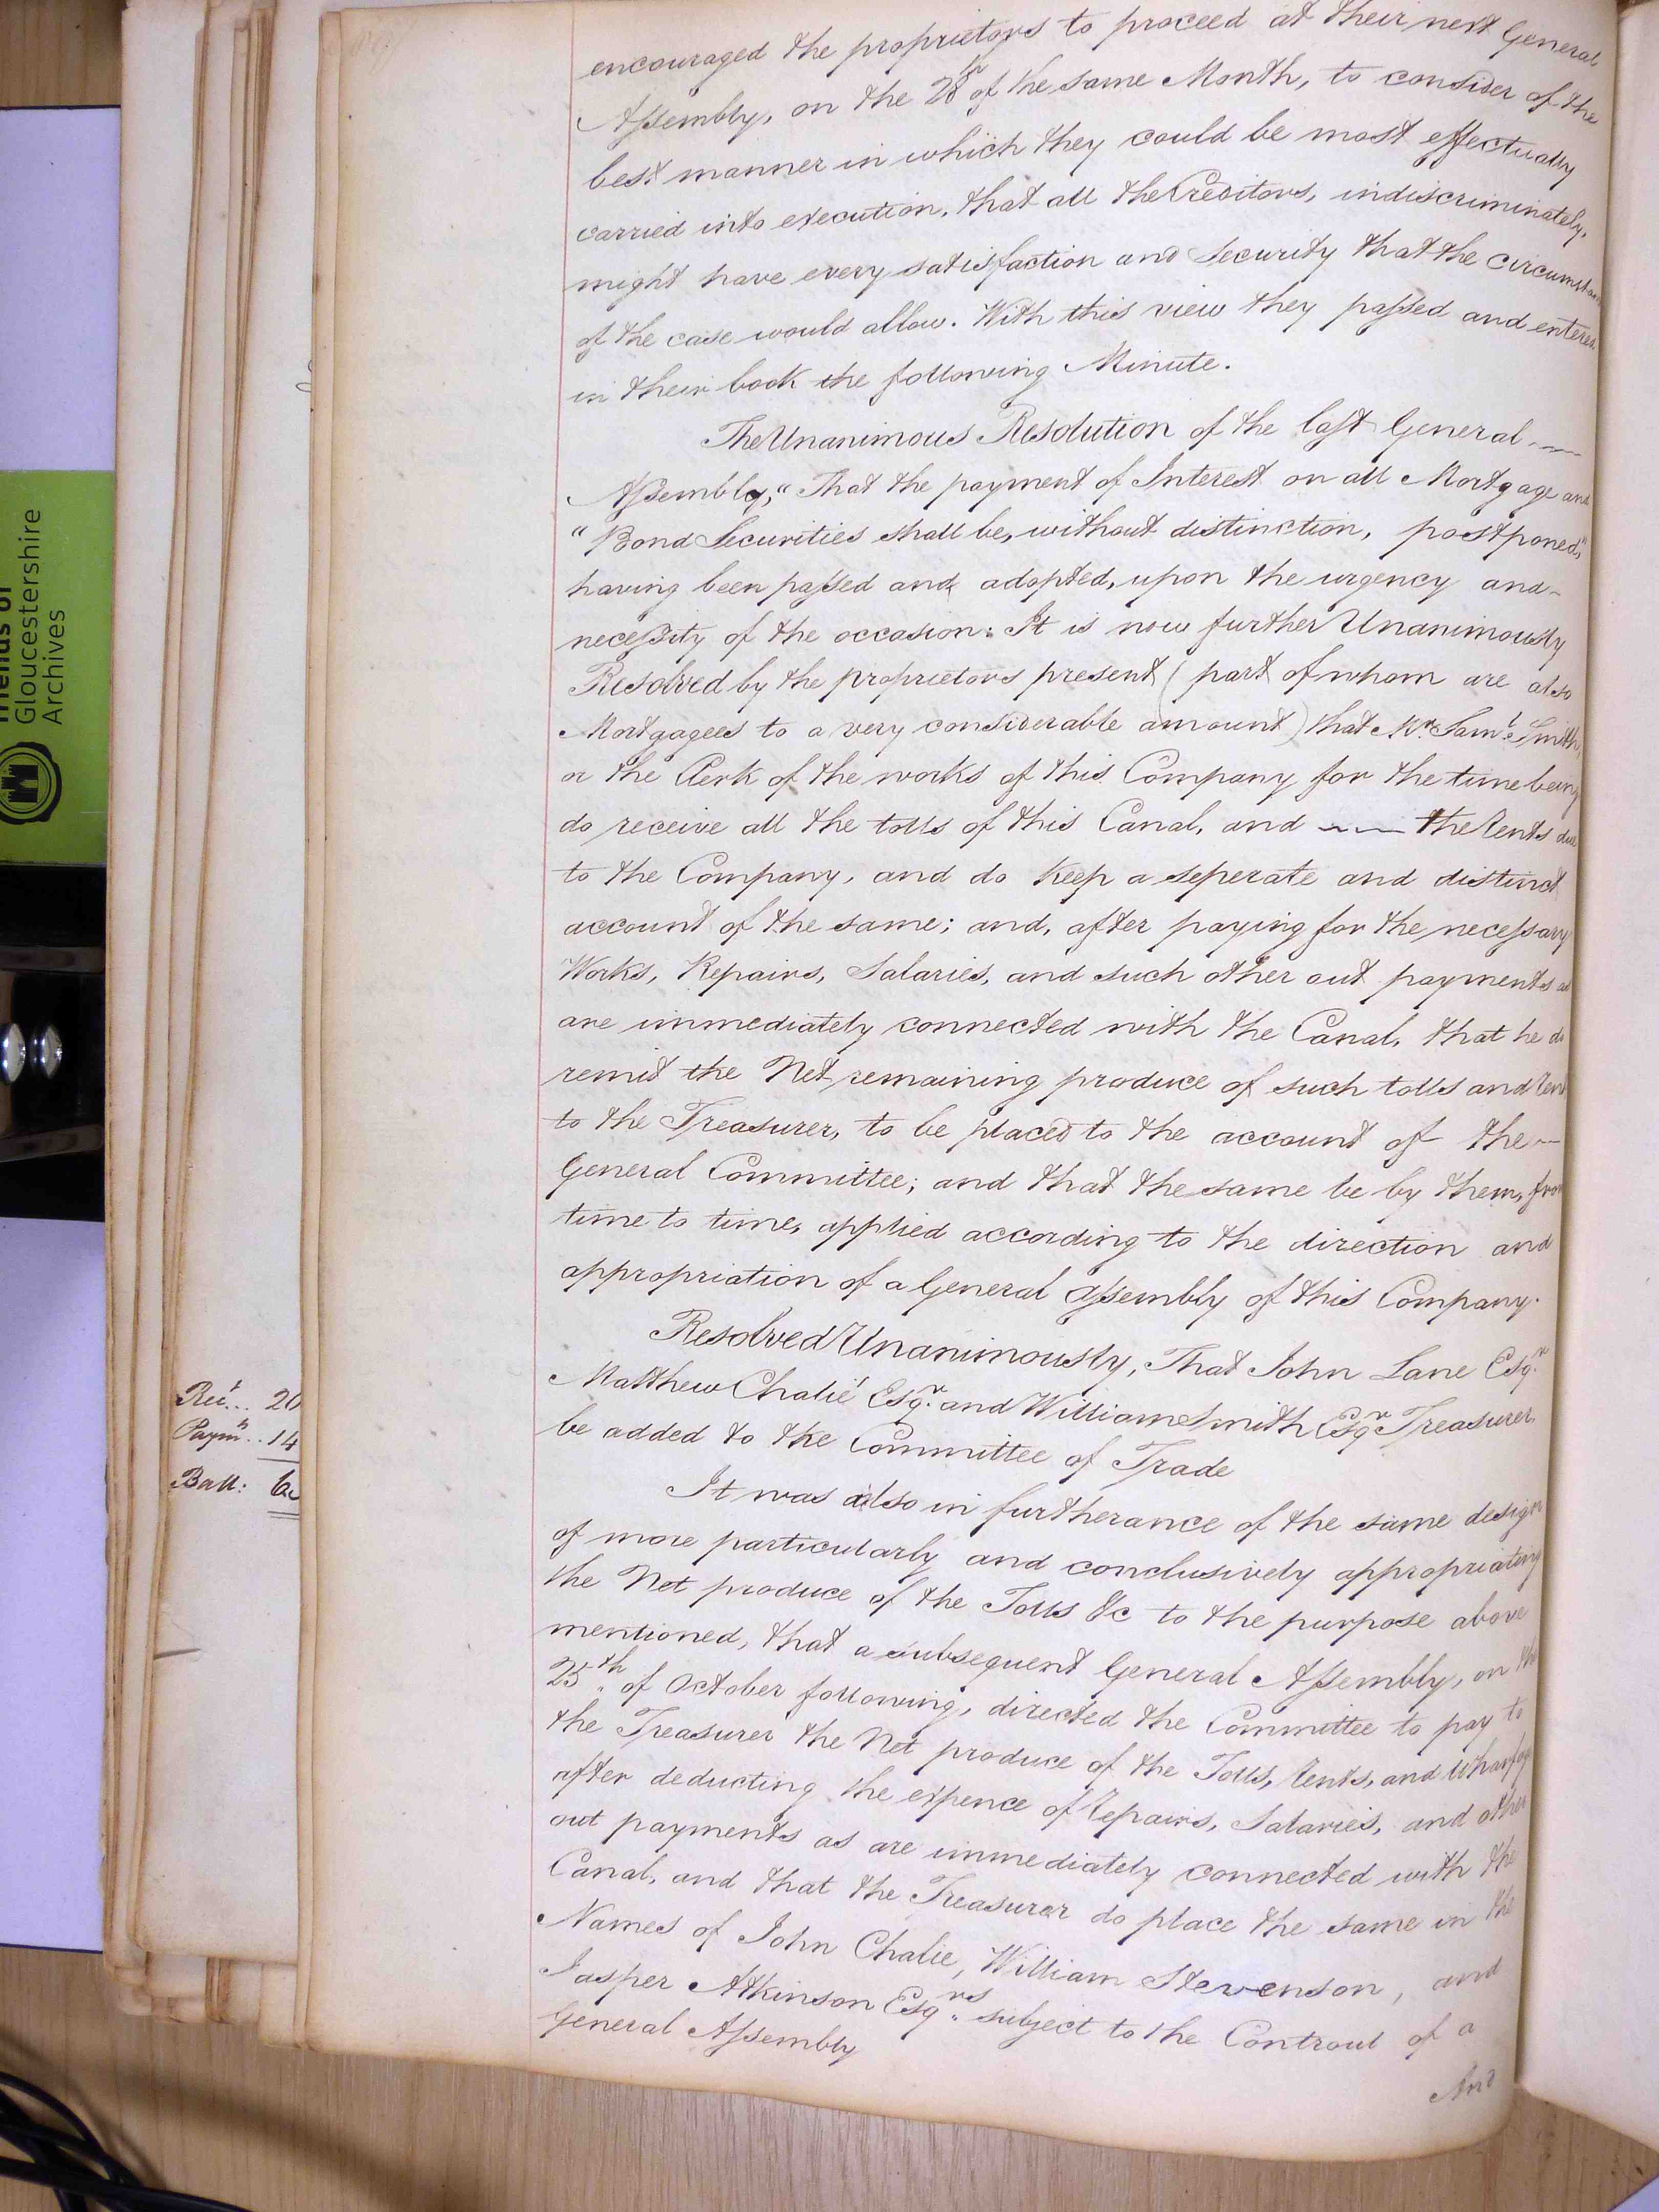 encouraged the proprietors to proceed at their next General
Assembly, on the 28th of the same Month, to consider of the
best manner in which they could be most effectually
carried into execution, that all the Creditors, indiscriminately,
might have every satisfaction and Security that the circumstan
of the case would allow. With this view they passed and entered
in their book the following Minute.
The Unanimous Resolution of the last General
Assembly, "That the payment of Interest on all Mortgage and
"Bond Securities shall be, without distinction, postponed,"
having been passed and adopted, upon the urgency and
necessity of the occasion: It is now further Unanimously
Resolved by the proprietors present (part of whom are also
Mortgagees to a very considerable amount) that Mr. Saml. Smith,
or the Clerk of the works of this Company for the time being
do receive all the tolls of this Canal, and the rents due
to the Company, and do keep a seperate and distinct
account of the same; and, after paying for the necessary
Works, Repairs, Salaries, and such other out payments as
are immediately connected with the Canal, that he do
remit the Net remaining produce of such tolls and ren
to the Treasurer, to be placed to the account of the
General Committee; and that the same be by them, from
time to time, applied according to the direction and
appropriation of a General Assembly of this Company.
Resolved Unanimously, That John Lane Esqr.
Matthew Chalié Esqr. and William Smith Esqr Treasurer,
be added to the Committee of Trade
It was also in furtherance of the same design
of more particularly and conclusively appropriating
the Net produce of the Tolls &c to the purpose above
mentioned, that a subsequent General Assembly, on the
25th. of October following, directed the Committee to pay to
the Treasurer the Net produce of the Tolls, rents, and Wharfage
after deducting the expence of repairs, Salaries, and other
out payments as are immediately connected with the
Canal, and that the Treasurer do place the same in the
Names of John Chalie, William Stevenson, and
Jasper Atkinson Esqrs. subject to the Controul of a
General Assembly
And
Rect... 20
Paymts.. 14
Ball:
Friends of
Gloucestershire
Archives